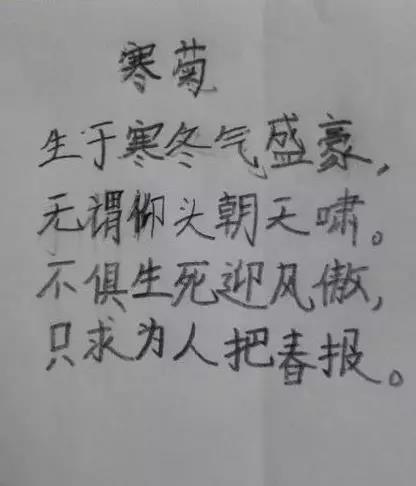 寒菊
生于寒冬气盛豪，
无谓仰头朝天啸。
不俱生死迎风傲，
只求为人把春报。